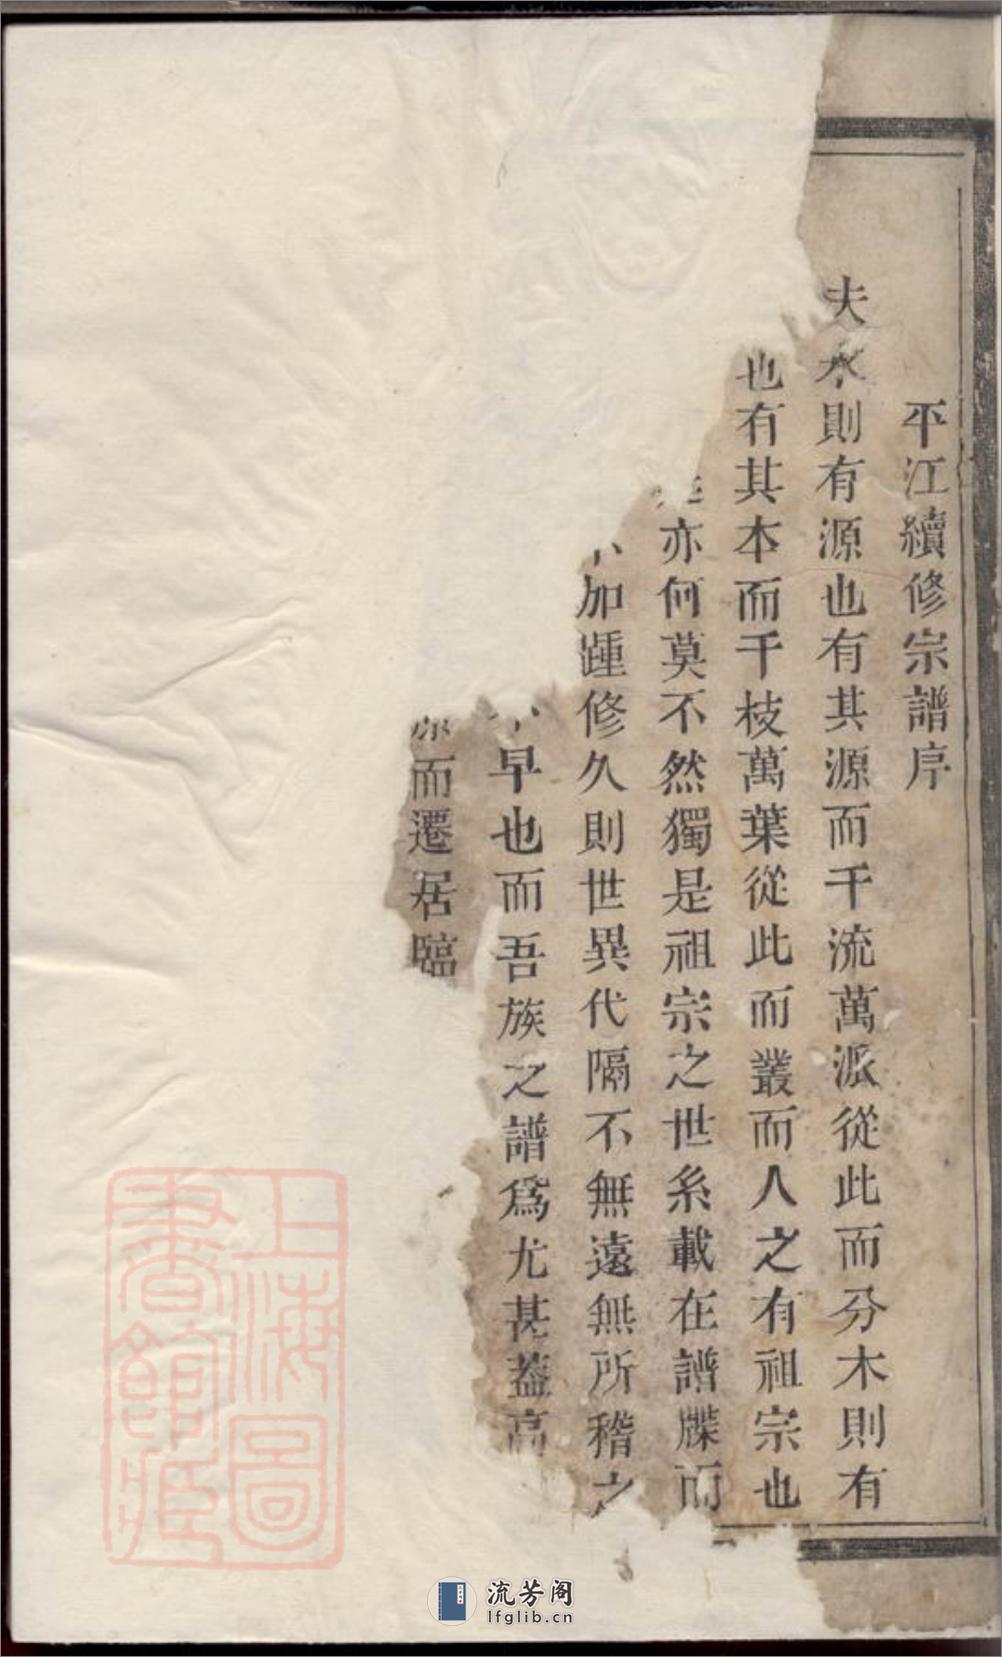 平江續修宗譜序
夫水則有源也有其源而千流萬派從此而分木則有
也有其本而千枝萬葉從此而叢而人之有祖宗也
亦何莫不然獨是祖宗之世系載在譜牒而
加踵修久則世異代隔不無遠無所稽之
早也而吾族之譜爲尤甚蓋高
而遷居臨
上海圖
書館藏
流芳阁
lfglib.cn